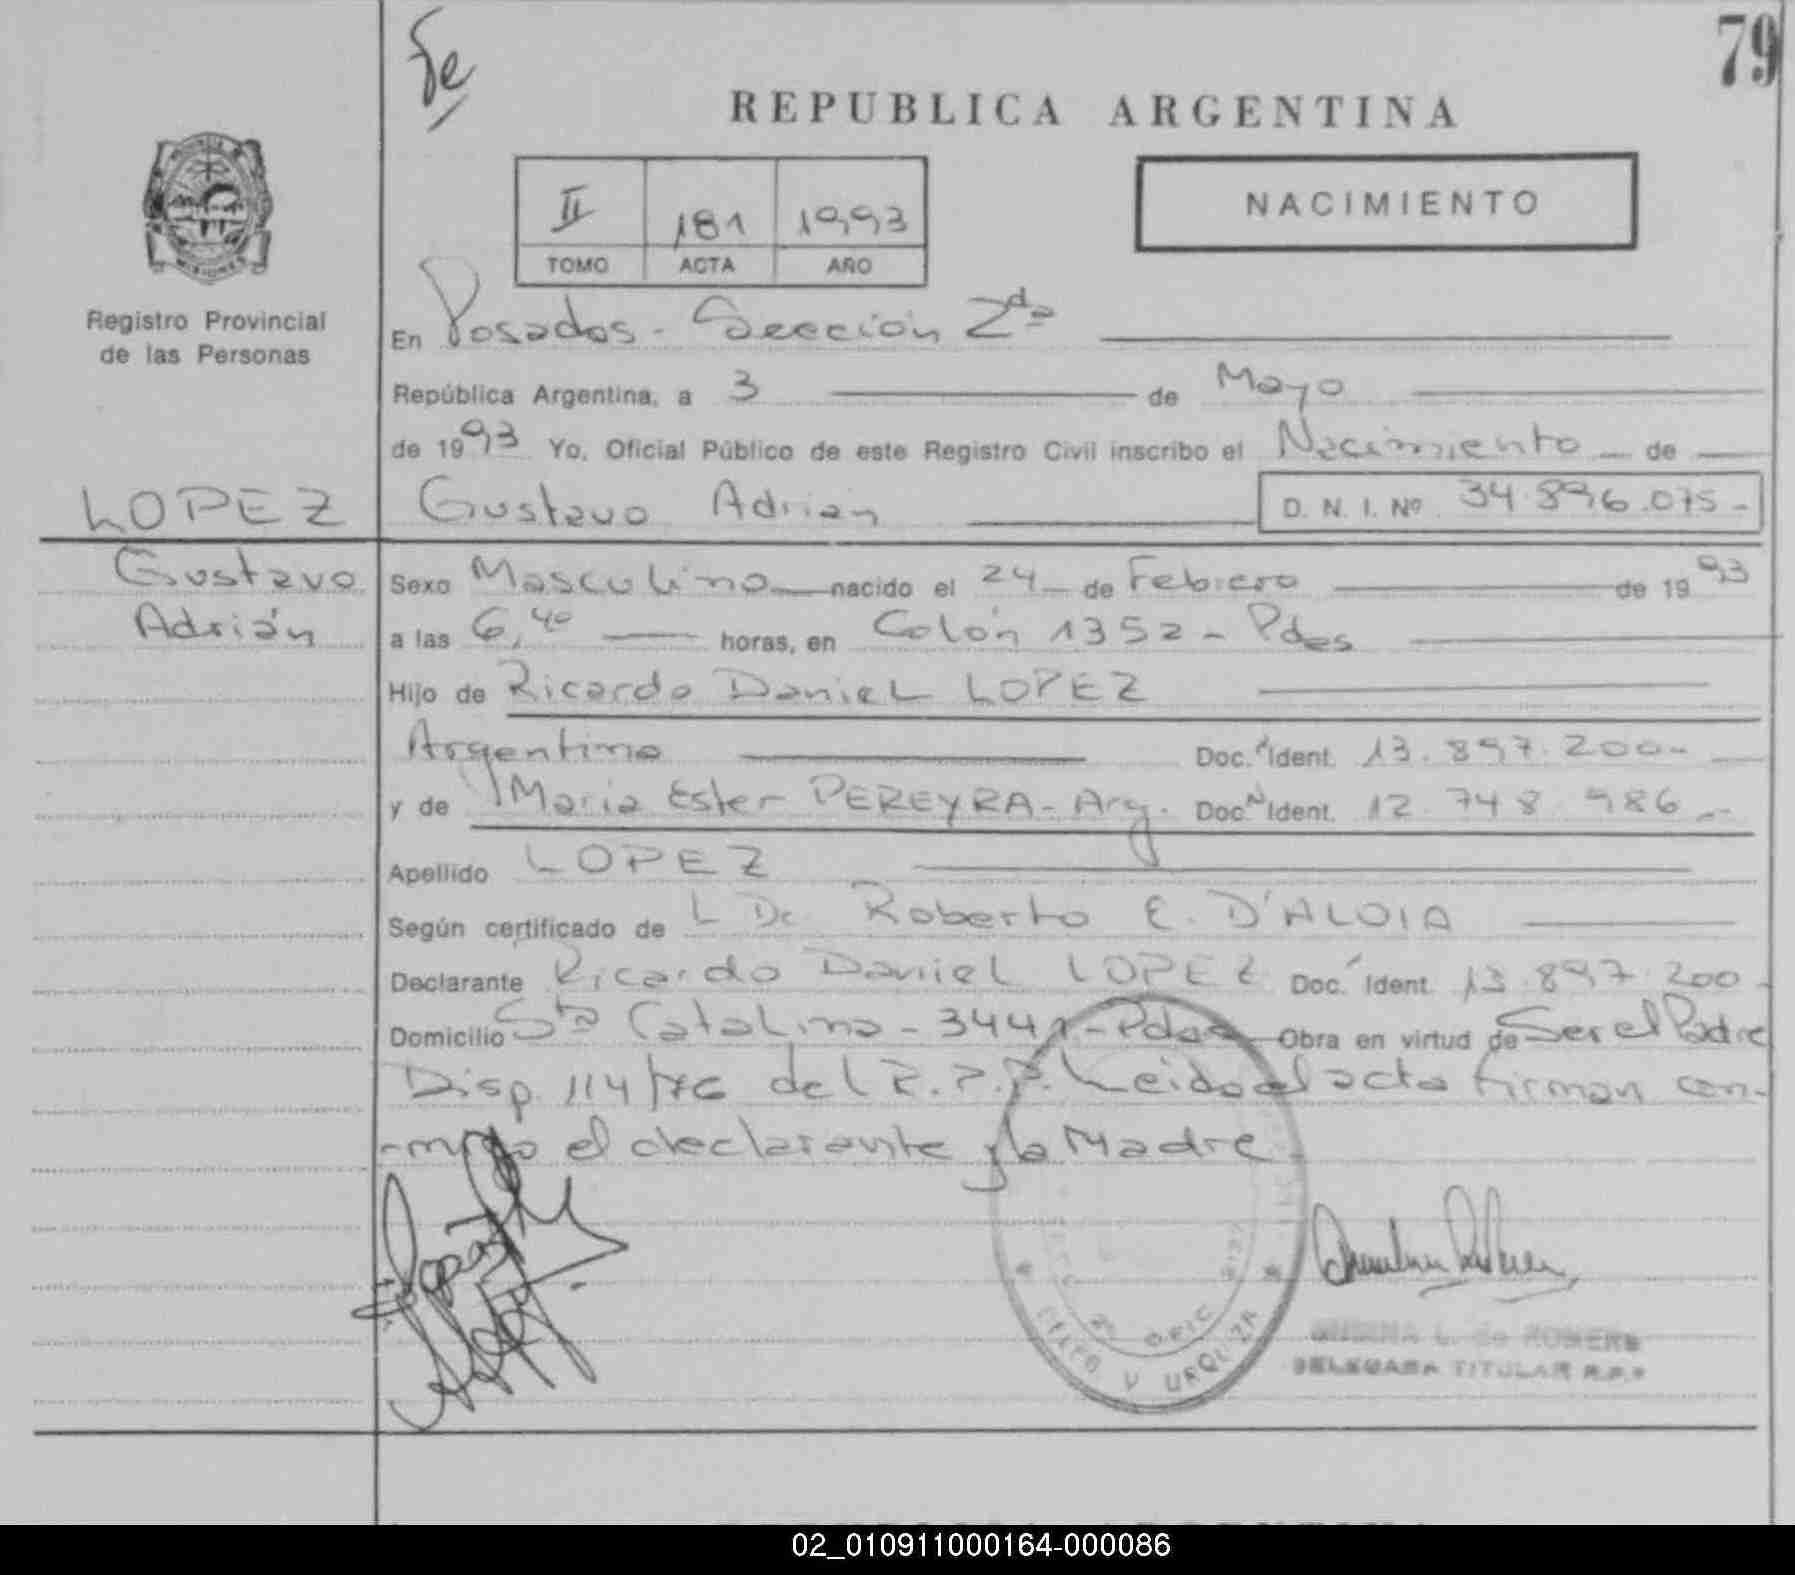 79
REPUBLICA ARGENTINA
II 181 1993
TOMO ACTA AÑO
NACIMIENTO
MISIONES
Registro Provincial
de las Personas
En Posadas - Sección 2da
República Argentina, a 3 de Mayo
de 1993 Yo, Oficial Público de este Registro Civil inscribo el Nacimiento de
LOPEZ
Gustavo
Adrián
Gustavo Adrian D. N. I. Nº 34.896.075-
Sexo Masculino nacido el 24 de Febrero de 1993
a las 6,40 horas, en Colón 1352 - Pdas
Hijo de Ricardo Daniel LOPEZ
Argentino Doc. Ident. 13.897.200-
y de Maria Ester PEREYRA - Arg. Doc. Ident. 12.748.986.-
Apellido LOPEZ
Según certificado de L Dr. Roberto E. D'ALOIA
Declarante Ricardo Daniel LOPEZ Doc. Ident. 13.897.200-
Domicilio Sta Catalina - 3441 - Pdas Obra en virtud de Ser el Padre
Disp. 114/76 del R.P.P. Leido el acta firman con-
-migo el declarante y la Madre
V URQUIZA
L. de ROMERO
DELEGADA TITULAR R.P.P
02_010911000164-000086